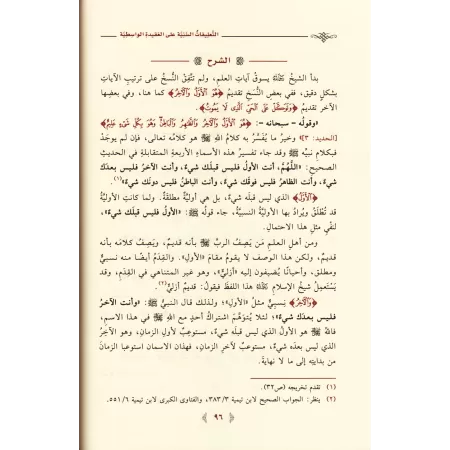 التعليقات السنية على العقيدة الواسطية
الشرح
بدأ الشيخ رحمه الله يسوق آيات العلم، ولم تتفق النسخ على ترتيب الآيات
بشكل دقيق، ففي بعض النسخ تقديم ﴿هُوَ الْأَوَّلُ وَالْآخِرُ﴾ كما هنا، وفي بعضها
الآخر تقديم ﴿وَتَوَكَّلْ عَلَى الْحَيِّ الَّذِي لَا يَمُوتُ﴾.
«وقوله - سبحانه -: ﴿هُوَ الْأَوَّلُ وَالْآخِرُ وَالظَّاهِرُ وَالْبَاطِنُ وَهُوَ بِكُلِّ شَيْءٍ عَلِيمٌ﴾
[الحديد: ٣]» وخير ما يُفسَّر به كلامُ الله ﷻ هو كلامه تعالى، فإن لم يوجَدْ
فبكلام نبيِّه ﷺ وقد جاء تفسيرُ هذه الأسماءِ الأربعةِ المتقابلةِ في الحديثِ
الصحيح: «اللَّهُمَّ، أنت الأولُ فليس قبلَك شيءٌ، وأنت الآخرُ فليس بعدَك
شيءٌ، وأنت الظاهرُ فليس فوقَك شيءٌ، وأنت الباطنُ فليس دونَك شيءٌ»(١).
﴿الْأَوَّلُ﴾ الذي ليس قبلَه شيءٌ، بل هي أوليَّةٌ مطلقةٌ. ولما كانتِ الأوليَّةُ
قد تُطلَقُ ويُرادُ بها الأوليَّةُ النسبيَّةُ، جاء قولُه ﷺ: «الأولُ فليس قبلَك شيءٌ»،
لنفْيِ مثلِ هذا الاحتمالِ.
ومن أهلِ العلمِ مَن يَصِفُ الربَّ ﷻ بأنه قديمٌ، ويَصِفُ كلامَه بأنه
قديمٌ، ولكن هذا الوصف لا يقومُ مقامَ «الأولِ». والقِدَمُ أيضًا منه نسبيٌّ
ومطلق، وأحيانًا يُضيفون إليه «أزليّ»، وهو غير المتناهي في القِدَم، وقد
يَستعمِلُ شيخُ الإسلامِ رحمه الله هذا اللفظَ فيقولُ: قديمٌ أزليٌّ(٢).
﴿وَالْآخِرُ﴾ يَسبِيٌّ مثلُ «الأولِ»؛ ولذلك قال النبيُّ ﷺ: «وأنت الآخرُ
فليس بعدَك شيءٌ»؛ لئلا يُتوهَّمَ اشتراكُ أحدٍ مع اللهِ ﷻ في هذا الاسمِ،
فاللهُ ﷻ هو الأولُ الذي ليس قبلَه شيءٌ، مستوعِبٌ لأولِ الزمانِ، وهو الآخِرُ
الذي ليس بعدَه شيءٌ، مستوعِبٌ لآخرِ الزمانِ، فهذان الاسمان استوعبا الزمانَ
من بدايتِه إلى ما لا نهايةَ.
(١) تقدم تخريجه (ص٣٢).
(٢) ينظر: الجواب الصحيح لابن تيمية ٣٨٣/٣، والفتاوى الكبرى لابن تيمية ٥٥١/٦.
٩٦